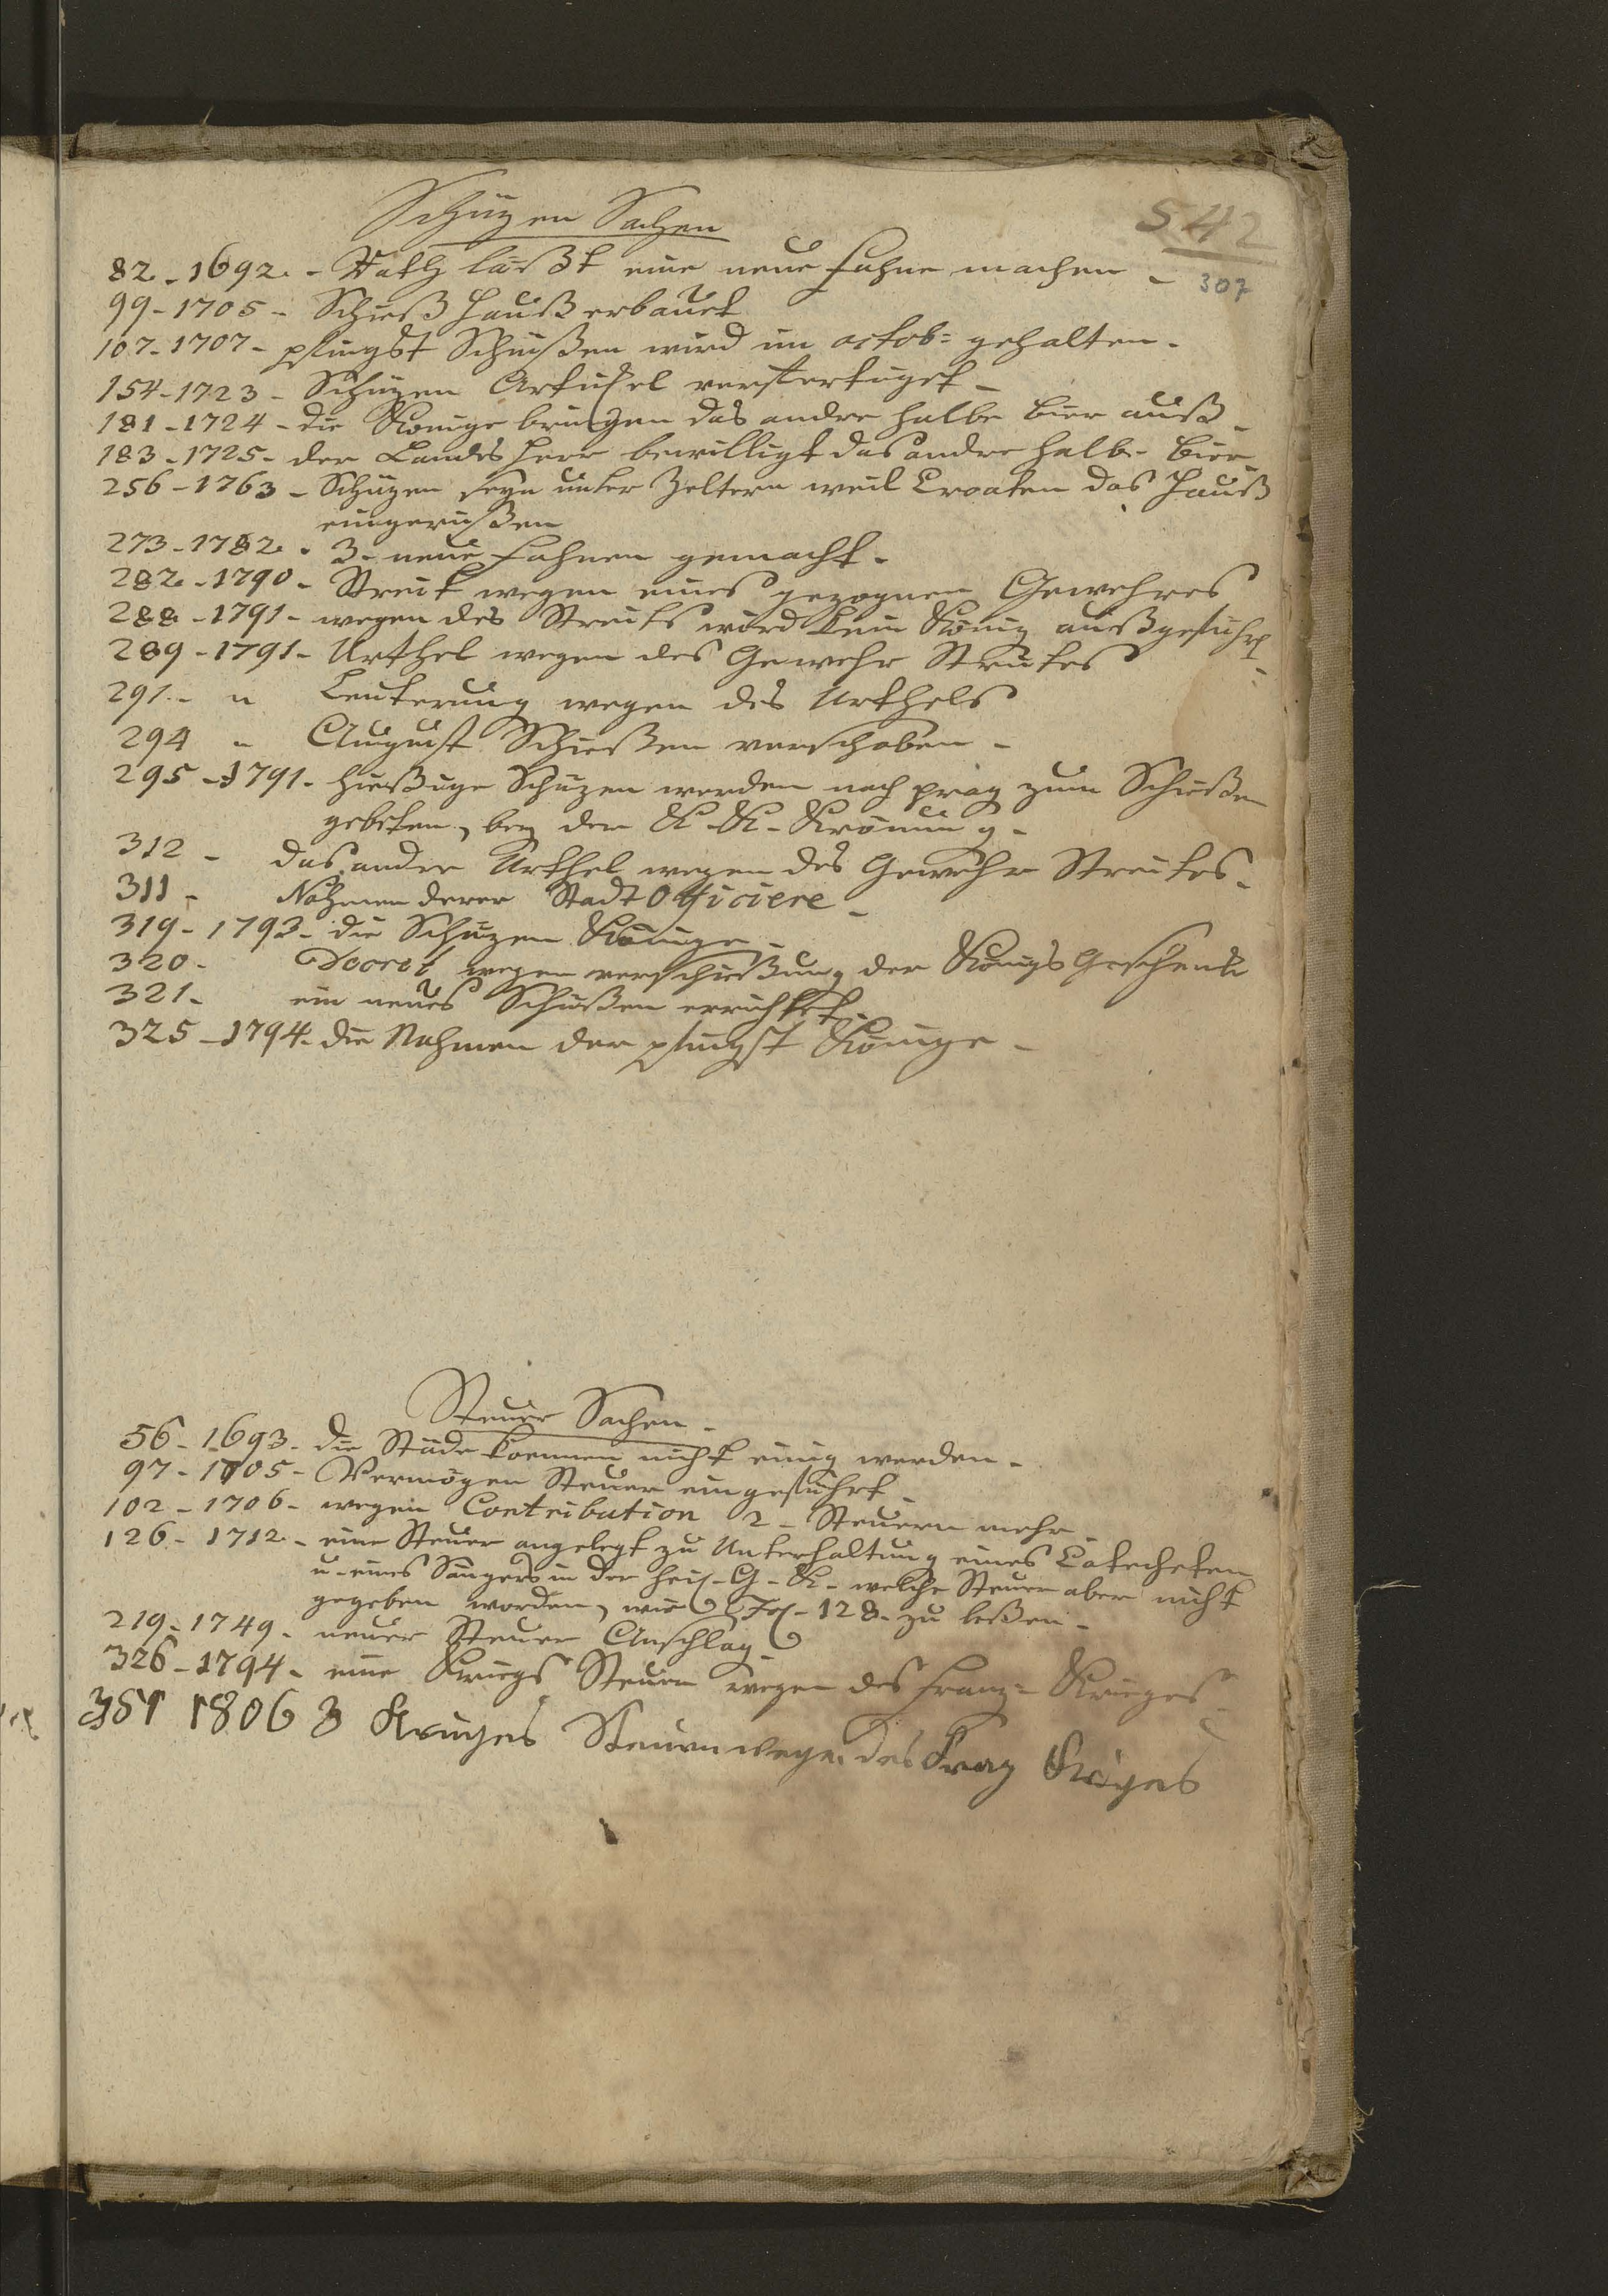 542
307
Schüzen Sachen
82 - 1692. - Rath läßt eine neue Fahne machen -
99 - 1705 - Schieß Hauß erbauet
107 - 1707 - pfingst Schüßen wird im octob: gehalten -
154 - 1723 - Schüzen Artickel verfertiget -
181 - 1724 - die Könige bringen das andre halbe Bier auß -
183 - 1725 - der Landes Herr bewilligt das andre halb - Bier
256 - 1763 - Schüzen seyn unter Zeltern weil Croaten das Hauß
eingerißen
273 - 1782 - 3 - neue Fahnen gemacht -
282 - 1790 - Streit wegen eines gezognen Gewehres
288 - 1791 - wegen des Streits wird kein König außgeführt -
289 - 1791 - Urthel wegen des Gewehr Streites
291 - " Leuterung wegen des Urthels
294 " August Schießen verschoben -
295 - 1791 - hießige Schüzen werden nach prag zum Schießen
gebeten, bey der K - K - Krönung -
312 - das andre Urthel wegen des Gewehr Streites -
311 - Nahmen derer Stadt Officiere -
319 - 1793 - die Schüzen Könige -
320 - Decret wegen verschießung der Königs Geschenke
321 - ein neues Schüßen errichtet -
325 - 1794 - die Nahmen der pfingst Könige -
Steuer Sachen -
56 - 1693 - die Städe koennen nicht einig werden -
97 - 1705 - Vermögen Steuer eingeführt -
102 - 1706 - wegen Contribution 2 - Steuern mehr -
126 - 1712 - eine Steuer angelegt zu Unterhaltung eines Catecheten
u - eines Sängers in der heil - G - K - welche Steuer aber nicht
gegeben worden, wie Fol - 128 - zu leßen -
219 - 1749 - neuer Steuer Anschlag -
326 - 1794 - eine Kriegs Steuer wegen des Franz = Krieges -
351 1806 3 Krieges Steuern wegen des Franz Krieges